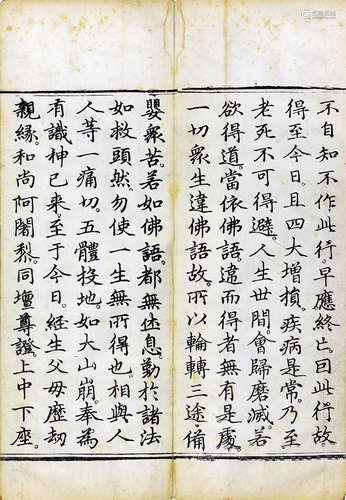 不自知不作此行。早應終亡。因此行故
得至今日。且四大增損。疾病是常。乃至
老死不可得避。人生世間會歸磨滅。若
欲得道。當依佛語。違而得者無有是處。
一切眾生違佛語故。所以輪轉三途。備
嬰眾苦。若如佛語。都無休息。勤於諸法
如救頭然。勿使一生無所得也。相與人
人等一痛切。五體投地。如大山崩。奉為
有識神已來。至于今日。經生父母。歷劫
親緣。和尚阿闍梨。同壇尊證。上中下座。